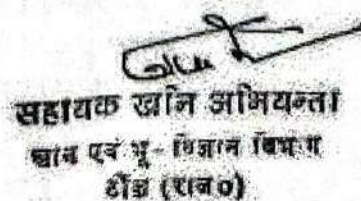 सहायक खनि अभियन्ता
खान एवं भू-विज्ञान विभाग
टोंक (राज०)